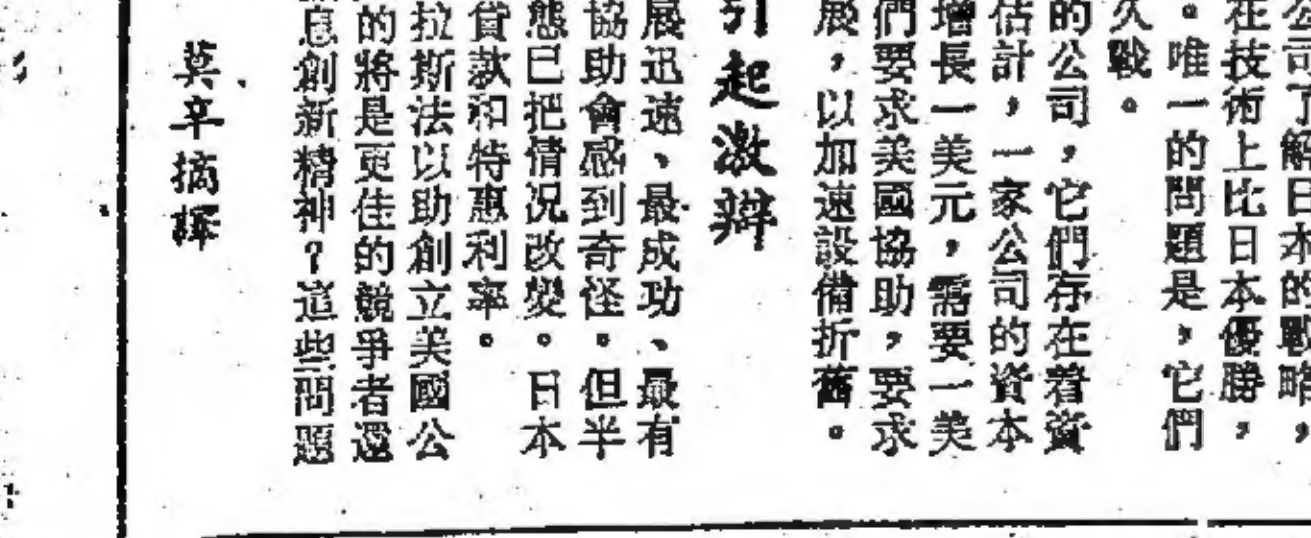 公司了解日本的戰略，
在技術上比日本優勝，
。唯一的問題是，它們
久戰。
的公司，它們存在着資
估計，一家公司的資本
增長一美元，需要一美
們要求美國協助，要求
展，以加速設備折舊。
引起激辯
展迅速、最成功、最有
協助會感到奇怪。但半
態已把情況改變。日本
貸款和特惠利率。
拉斯法以助創立美國公
的將是更佳的競爭者還
息創新精神？這些問題
莫辛摘譯